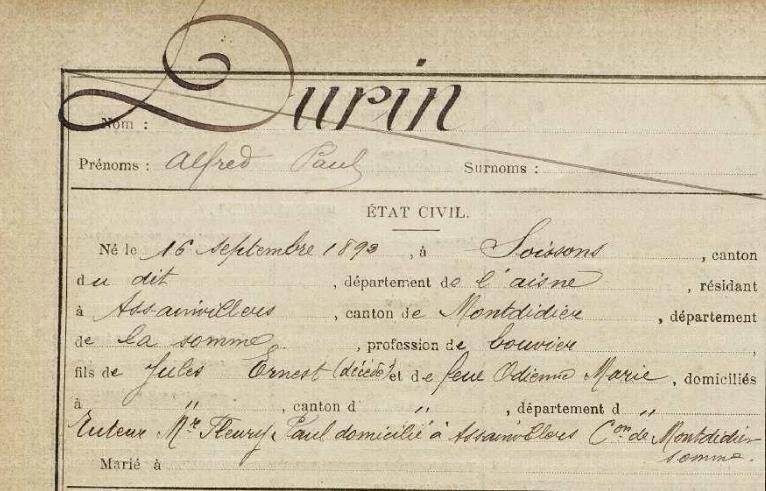 Durin
Nom :
Prénoms : Alfred Paul Surnoms :
ÉTAT CIVIL.
Né le 16 septembre 1893, à Soissons, canton
du dit, département de l'aisne, résidant
à Assainvillers, canton de Montdidier, département
de la somme, profession de bouvier,
fils de Jules Ernest (décédé) et de feue Odienne Marie, domiciliés
à " , canton d " , département d "
Tuteur Mr Fleury Paul domicilié à Assainvillers Con de Montdidier
somme.
Marié à